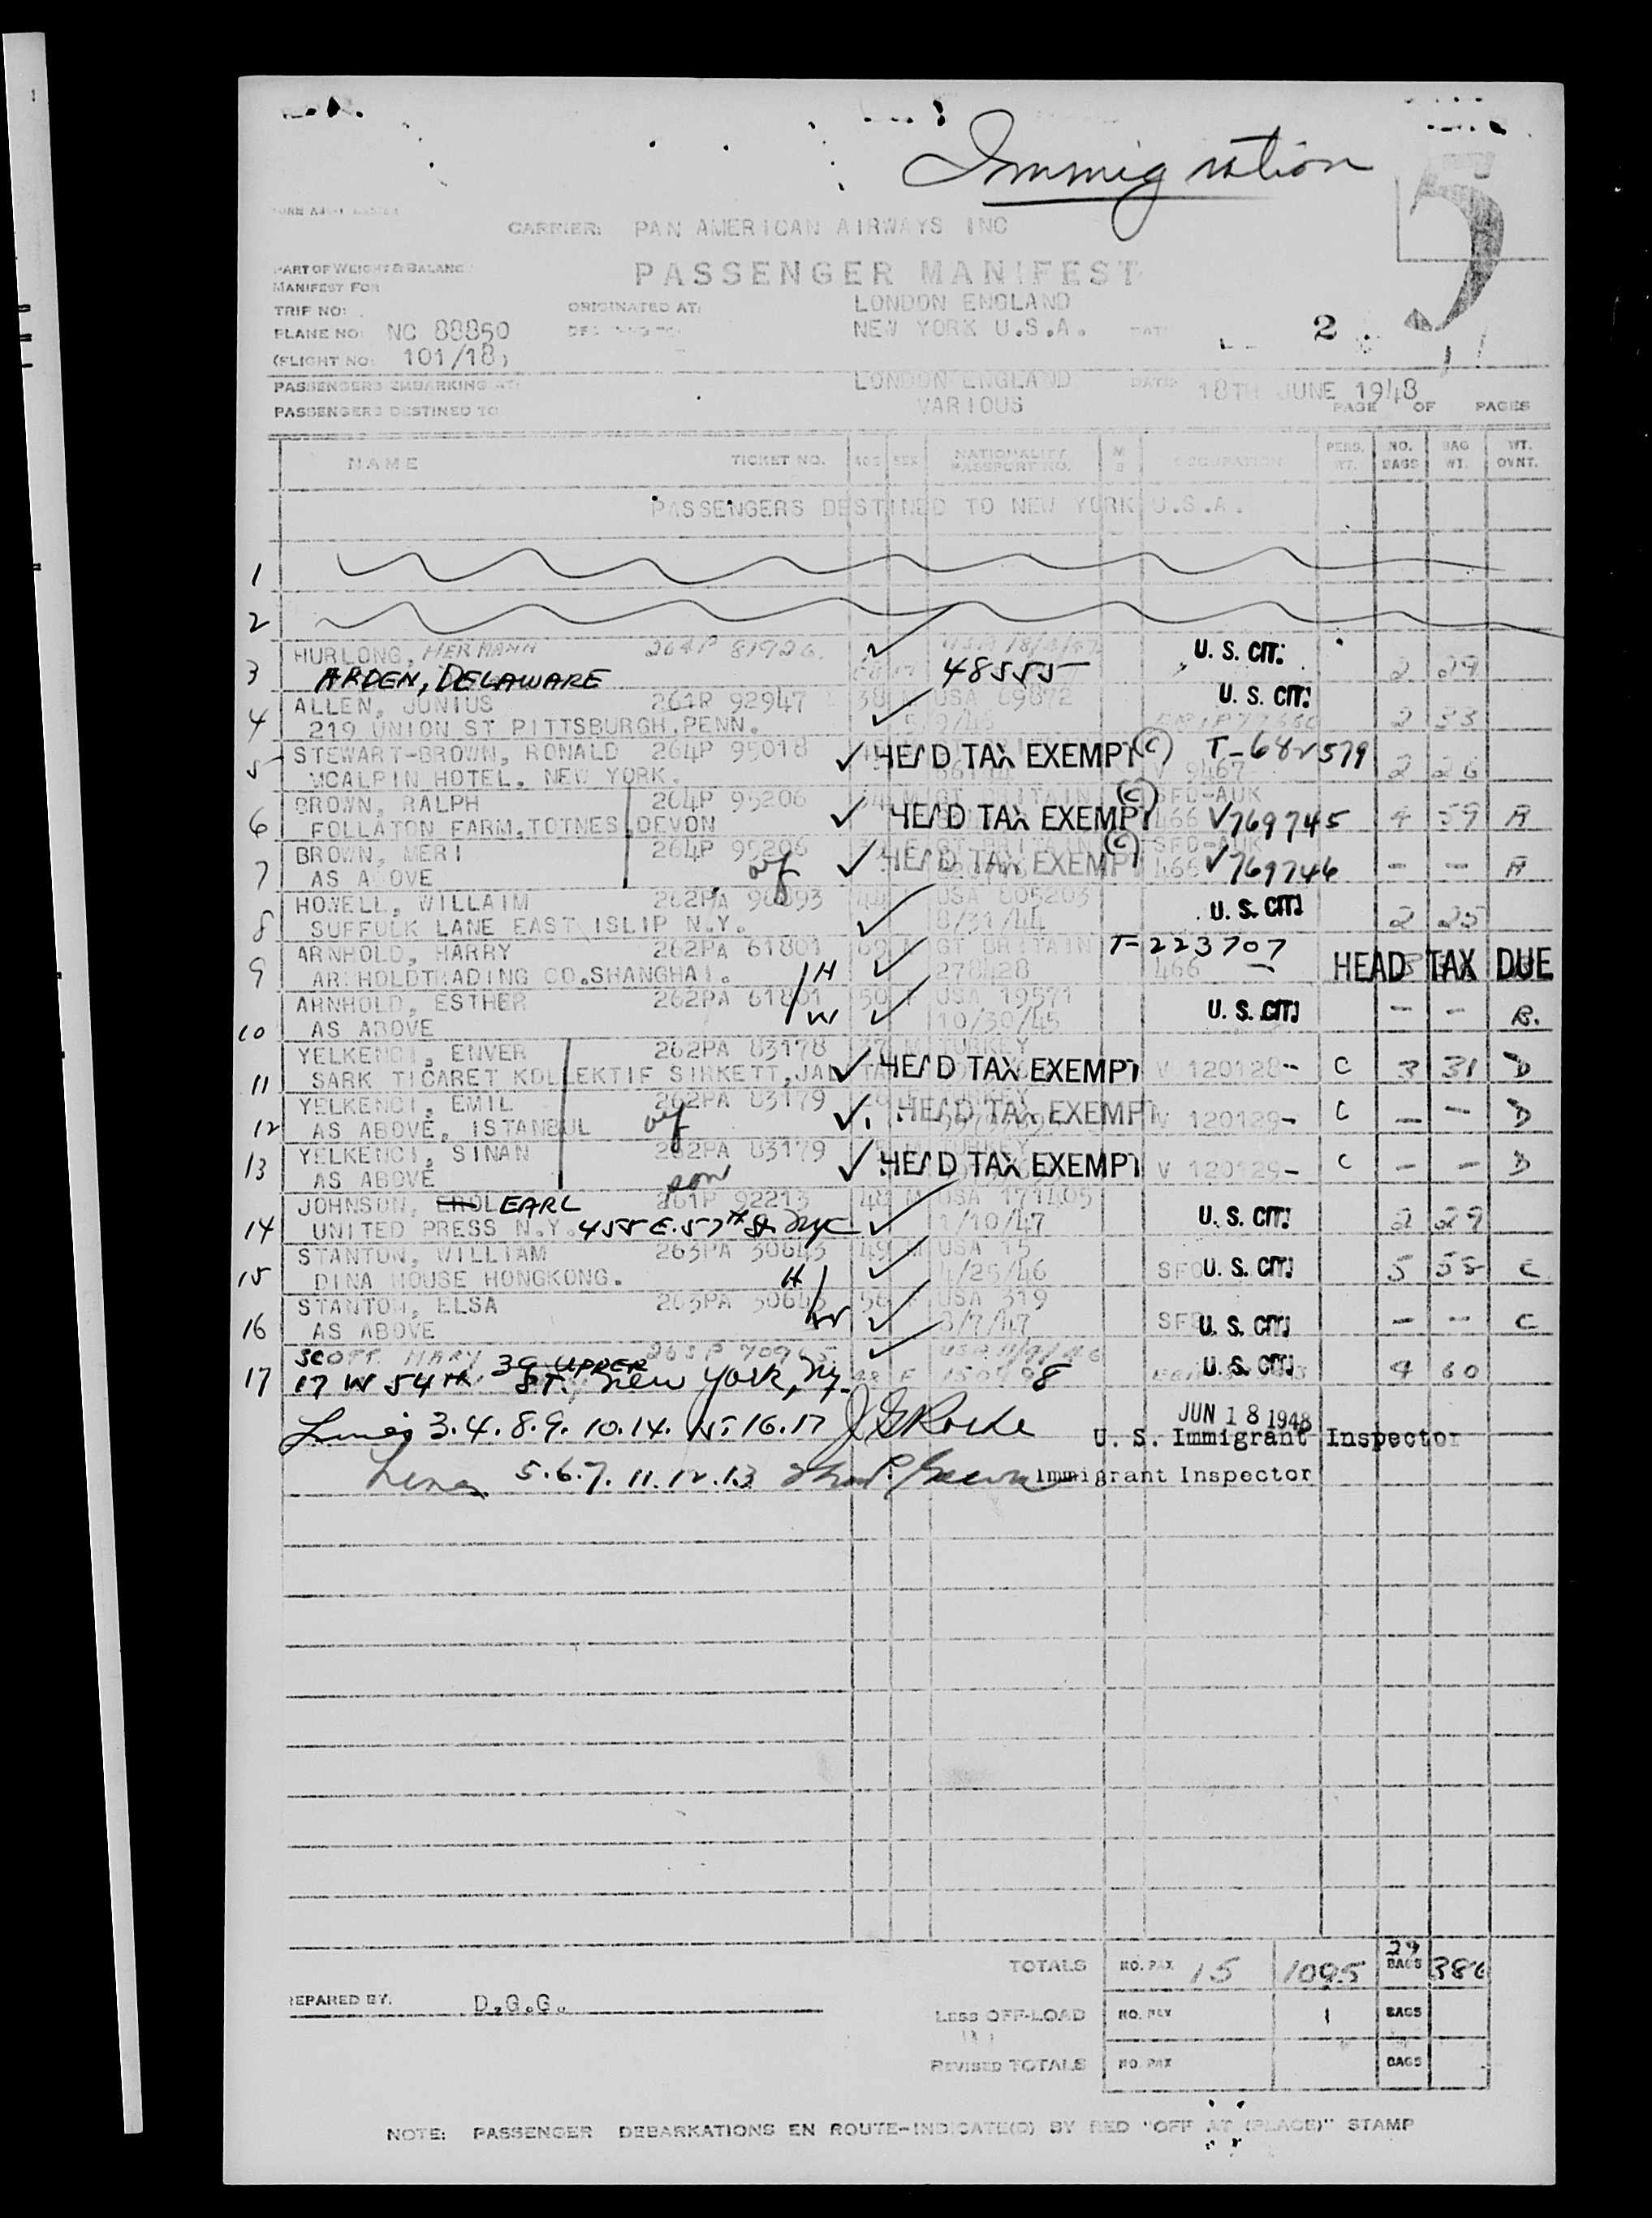 Immigration
5
CARRIER: PAN AMERICAN AIRWAYS INC
PART OF WEIGHT & BALANC
MANIFEST FOR
PASSENGER MANIFEST
TRIP NO:
ORIGINATED AT:
LONDON ENGLAND
PLANE NO: NC 88850
NEW YORK U.S.A.
2
(FLIGHT NO: 101/18)
PASSENGERS EMBARKING AT: LONDON ENGLAND DATE 18TH JUNE 1948
PASSENGERS DESTINED TO VARIOUS PAGE OF PAGES
NAME TICKET NO. AGE SEX NATIONALITY PASSPORT NO. OCCUPATION PERS. WT. NO. BAGS BAG WT. WT. OVNT.
PASSENGERS DESTINED TO NEW YORK U.S.A.
1
2
3 HURLONG, HERMANN 264P 81926. U.S. CIT. 2 29
ARDEN, DELAWARE 48555
4 ALLEN, JUNIUS 261P 92947 38 M USA 89872 U.S. CIT. 2 33
219 UNION ST PITTSBURGH.PENN.
5 STEWART-BROWN, RONALD 264P 95018 HEAD TAX EXEMPT (C) T-682579 2 26
MCALPIN HOTEL. NEW YORK. V 9467
6 BROWN, RALPH 264P 95206 M GT BRITAIN HEAD TAX EXEMPT (C) SFD-AUK 466 V769745 4 59 A
FOLLATON FARM.TOTNES DEVON
7 BROWN, MERI 264P 95206 wf HEAD TAX EXEMPT (C) 466 V769746 - - A
AS ABOVE
8 HOWELL, WILLAIM 262PA 96893 44 USA 805203 U.S. CIT. 2 25
SUFFOLK LANE EAST ISLIP N.Y. 8/31/44
9 ARNHOLD, HARRY 262PA 61801 69 GT BRITAIN T-223707
ARNHOLDTRADING CO.SHANGHAI. H 278428 466 HEAD TAX DUE
10 ARNHOLD, ESTHER 262PA 61801 50 F USA 19571 U.S. CIT. - - B.
AS ABOVE W 10/30/45
11 YELKENCI, ENVER 262PA 83178 37 M TURKEY
SARK TICARET KOLLEKTIF SIRKETT,JAL HEAD TAX EXEMPT V 120128- C 3 31 D
12 YELKENCI, EMIL 262PA 83179 wf
AS ABOVE, ISTANBUL HEAD TAX EXEMPT V 120129- C - - D
13 YELKENCI, SINAN 262PA 83179 M TURKEY
AS ABOVE son HEAD TAX EXEMPT V 120129- C - - D
14 JOHNSON, EROL EARL 261P 92213 48 M USA 171405 U.S. CIT. 2 29
UNITED PRESS N.Y. 455 E. 57th St nyc 1/10/47
15 STANTON, WILLIAM 263PA 30643 49 M USA 15 U.S. CIT. 5 58 C
DINA HOUSE HONGKONG. H 4/25/46
16 STANTON, ELSA 263PA 30643 56 F USA 319 U.S. CIT. - - C
AS ABOVE W 8/7/47
17 SCOTT MARY 39 UPPER 263P 70965 U.S. CIT. 4 60
17 W 54th ST. New York, Ny. 28 F 8
Lines 3.4.8.9.10.14.15.16.17 JUN 18 1948
U. S. Immigrant Inspector
Lines 5.6.7.11.12.13 Immigrant Inspector
TOTALS NO. PAX 15 1095 29 BAGS 386
REPARED BY. D.G.G.
LESS OFF-LOAD NO. PAX 1 BAGS
REVISED TOTALS NO. PAX BAGS
NOTE: PASSENGER DEBARKATIONS EN ROUTE-INDICATE(D) BY RED "OFF AT (PLACE)" STAMP